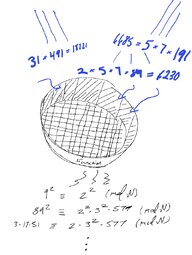 31 × 491 = 15221
6685 = 5 × 7 × 191
2 × 5 × 7 × 89 = 6230
9² ≡ 2² (mod N)
89² ≡ 2² · 3² · 577 (mod N)
3·17·51 ≡ 2 · 3² · 577 (mod N)
⋮